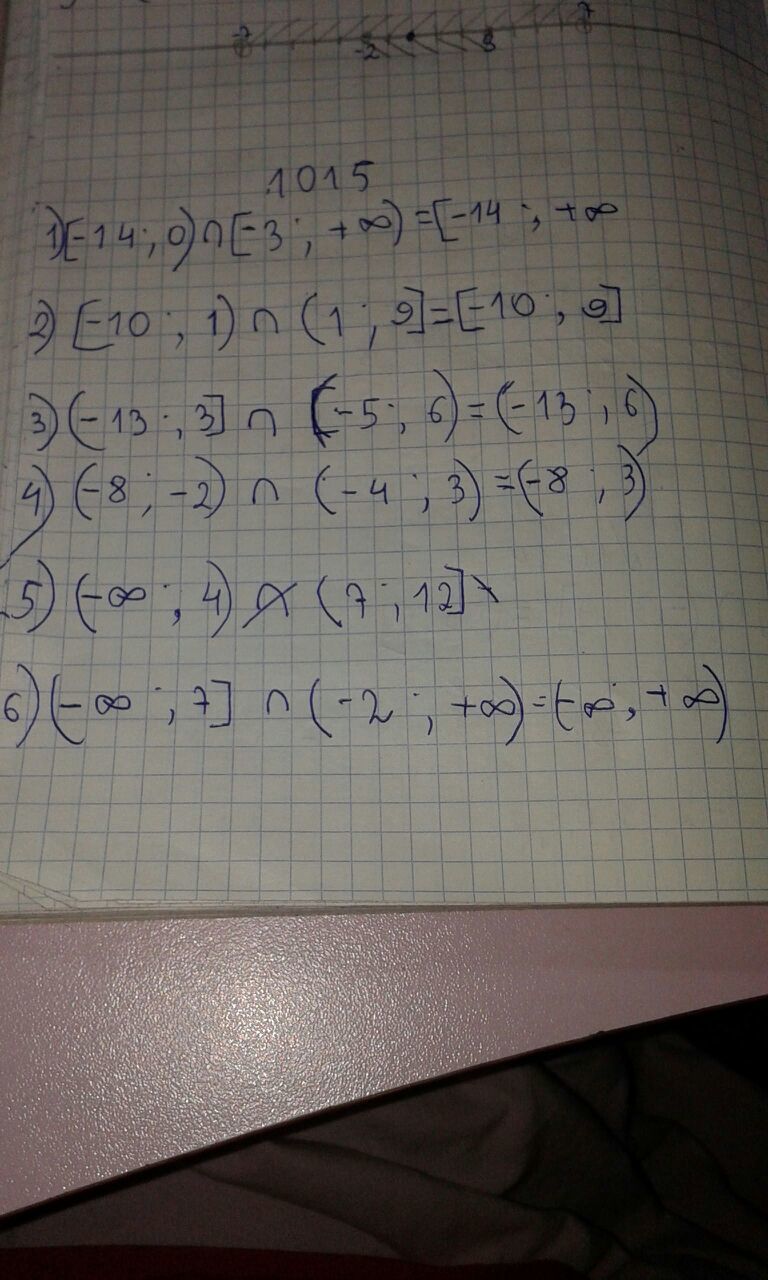 -7 -2 3 7
1015
1) [-14 ; 0) ∩ [-3 ; +∞) = [-14 ; +∞
2) [-10 ; 1) ∩ (1 ; 9] = [-10 ; 9]
3) (-13 ; 3] ∩ (-5 ; 6) = (-13 ; 6)
4) (-8 ; -2) ∩ (-4 ; 3) = (-8 ; 3)
5) (-∞ ; 4) ∩ (7 ; 12]
6) (-∞ ; 7] ∩ (-2 ; +∞) = (-∞ ; +∞)